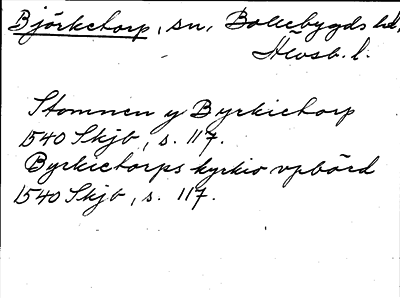 Björketorp, sn, Bollebygds hd,
Älvsb. l.
Stomnen y Byrkietorp
1540 Skjb, s. 117.
Byrkietorps kyrkio vpbörd
1540 Skjb, s. 117.